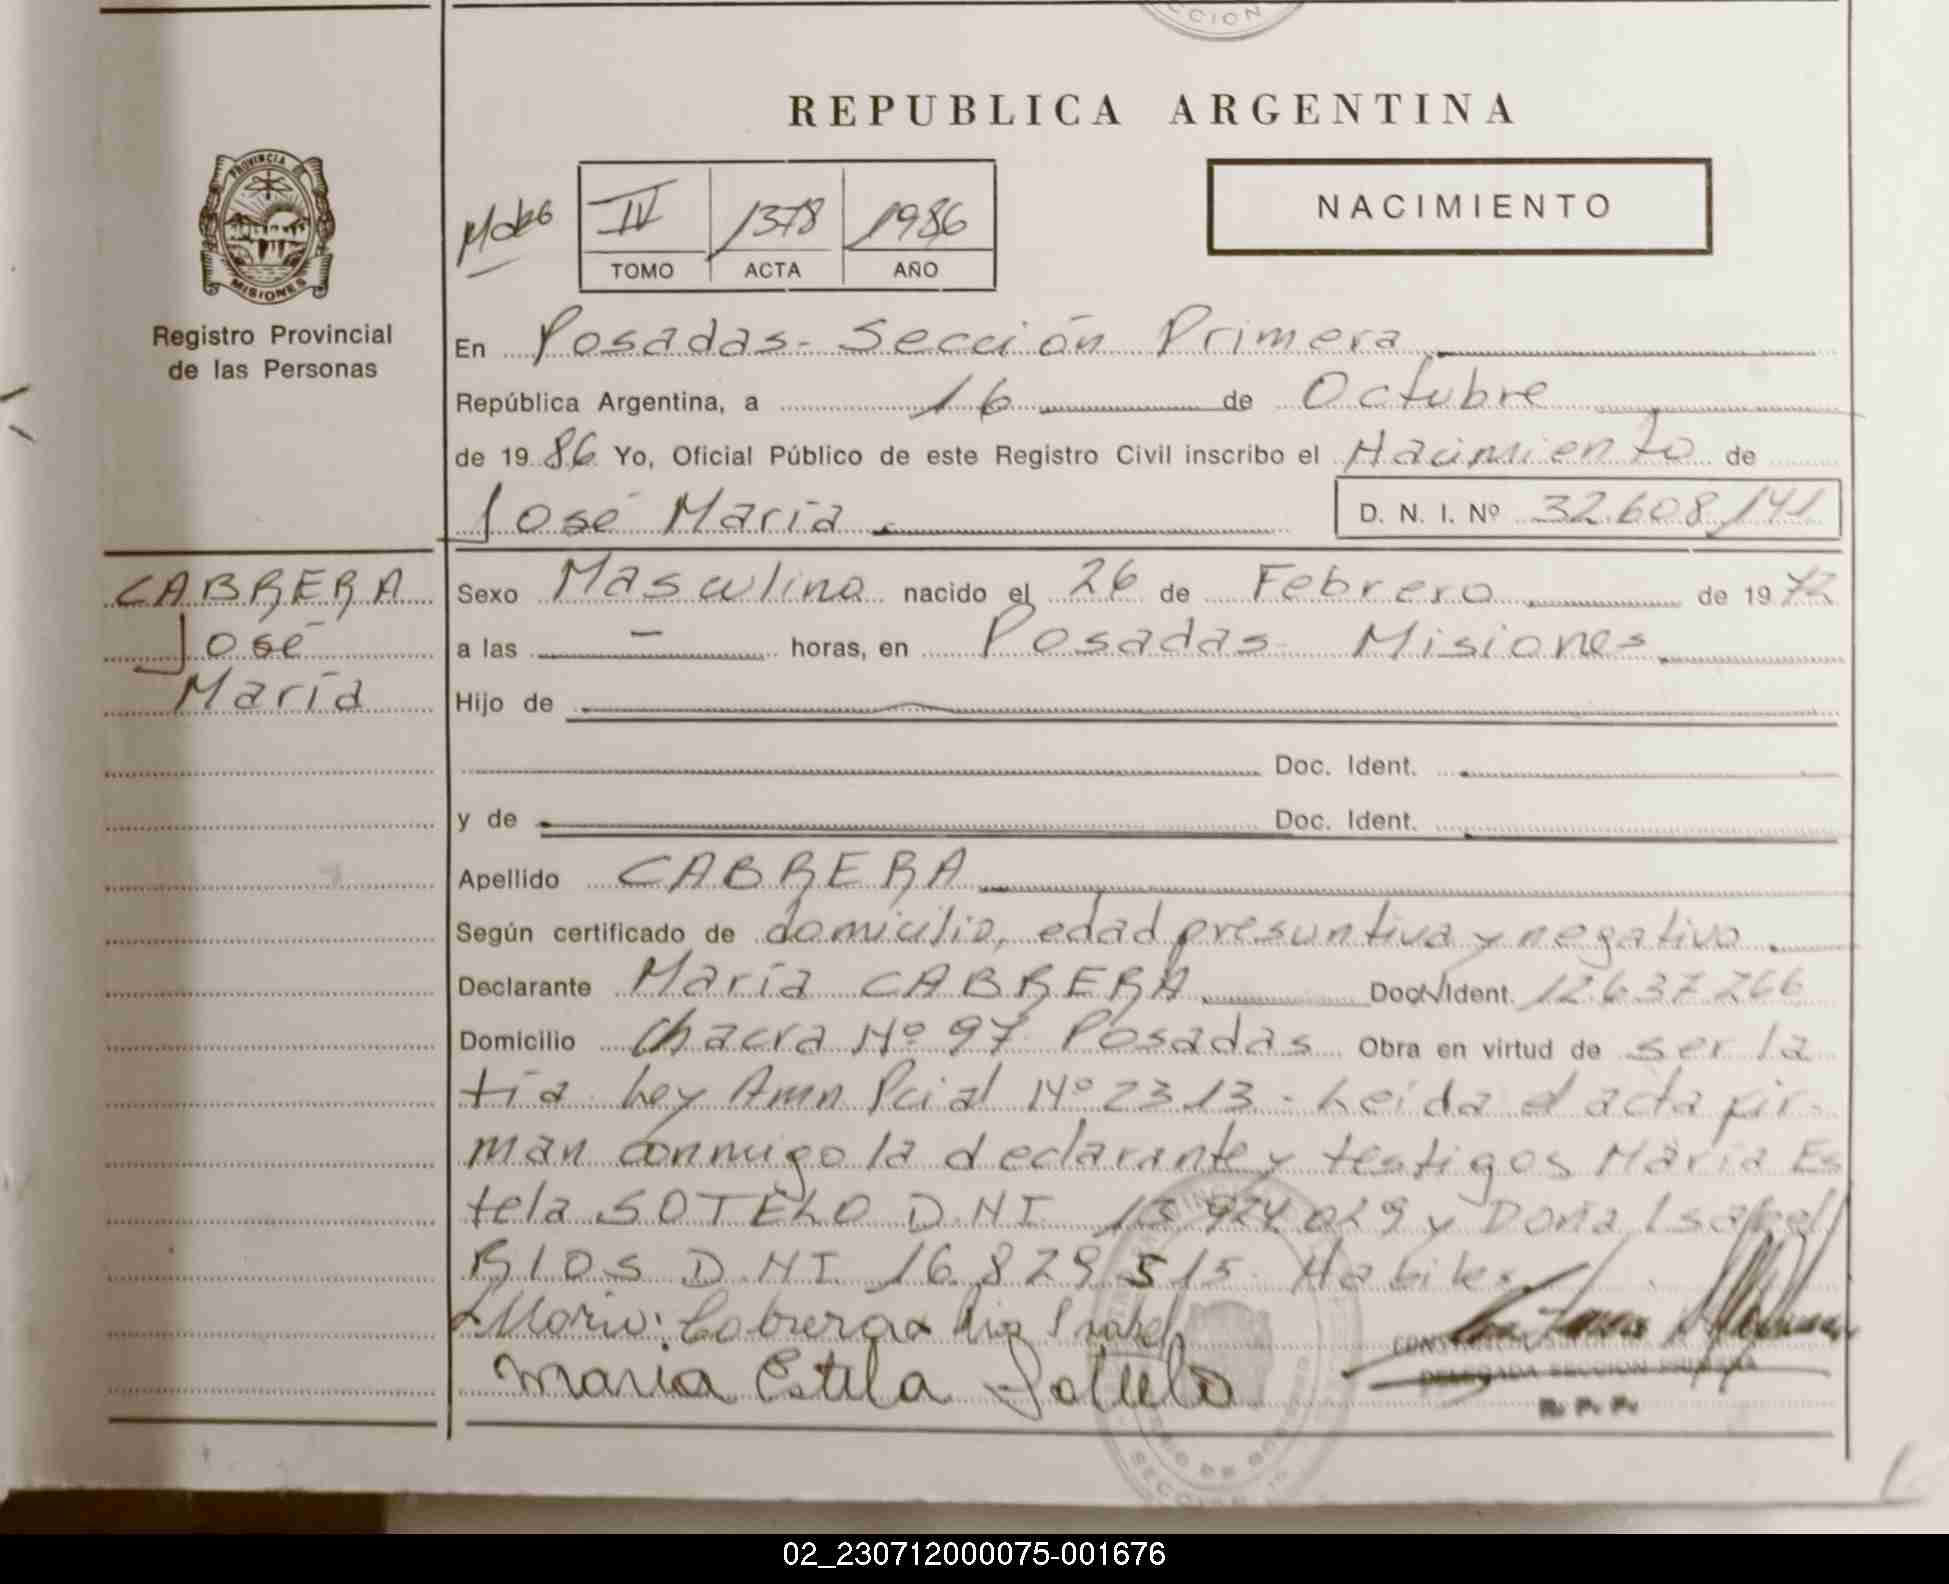 CCION
REPUBLICA ARGENTINA
PROVINCIA DE
MISIONES
Registro Provincial
de las Personas
IV 1378 1986
TOMO ACTA AÑO
NACIMIENTO
En Posadas - Sección Primera
República Argentina, a 16 de Octubre
de 1986 Yo, Oficial Público de este Registro Civil inscribo el Nacimiento de
José María
D. N. I. Nº 32.608.141
CABRERA
José
María
Sexo Masculino nacido el 26 de Febrero de 1972
a las — horas, en Posadas - Misiones
Hijo de
Doc. Ident.
y de Doc. Ident.
Apellido CABRERA
Según certificado de domicilio, edad presuntiva y negativo.
Declarante María CABRERA Doc. Ident. 12.637.266
Domicilio Chacra Nº 97 Posadas Obra en virtud de ser la
tía. Ley Amn Pcial Nº 2313 - Leída el acta fir-
man conmigo la declarante y testigos María Es
tela SOTELO D.N.I. 13.924.029 y Doña Isabel
RIOS D.N.I 16.829.515. Habiles
Maria Cabrera Rios Isabel
Maria Estela Sotelo
DELEGADA SECCION PRIMERA
R. P. P.
02_230712000075-001676